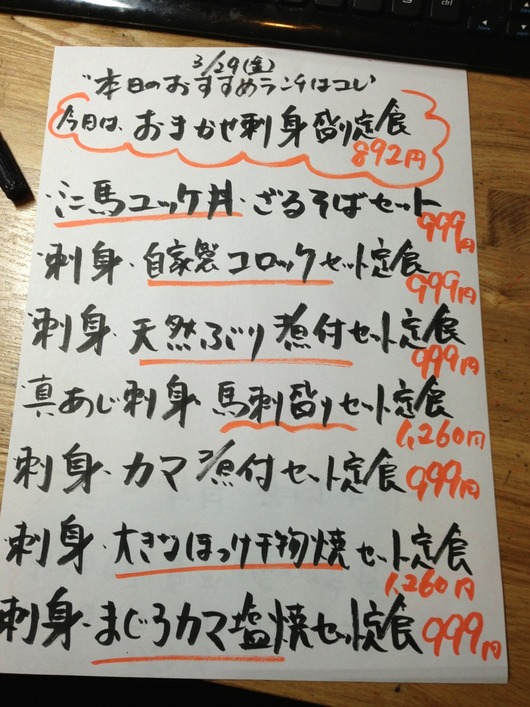 3/29(金)
"本日のおすすめランチはコレ
今日は、おまかせ刺身盛り定食
892円
・ミニ馬ユッケ丼・ざるそばセット
999円
・刺身・自家製コロッケセット定食
999円
・刺身・天然ぶり煮付セット定食
999円
・真あじ刺身 馬刺盛りセット定食
1,260円
・刺身・カマ煮付セット定食 999円
・刺身・大きなほっけ干物焼セット定食
1,260円
・刺身・まぐろカマ塩焼セット定食 999円